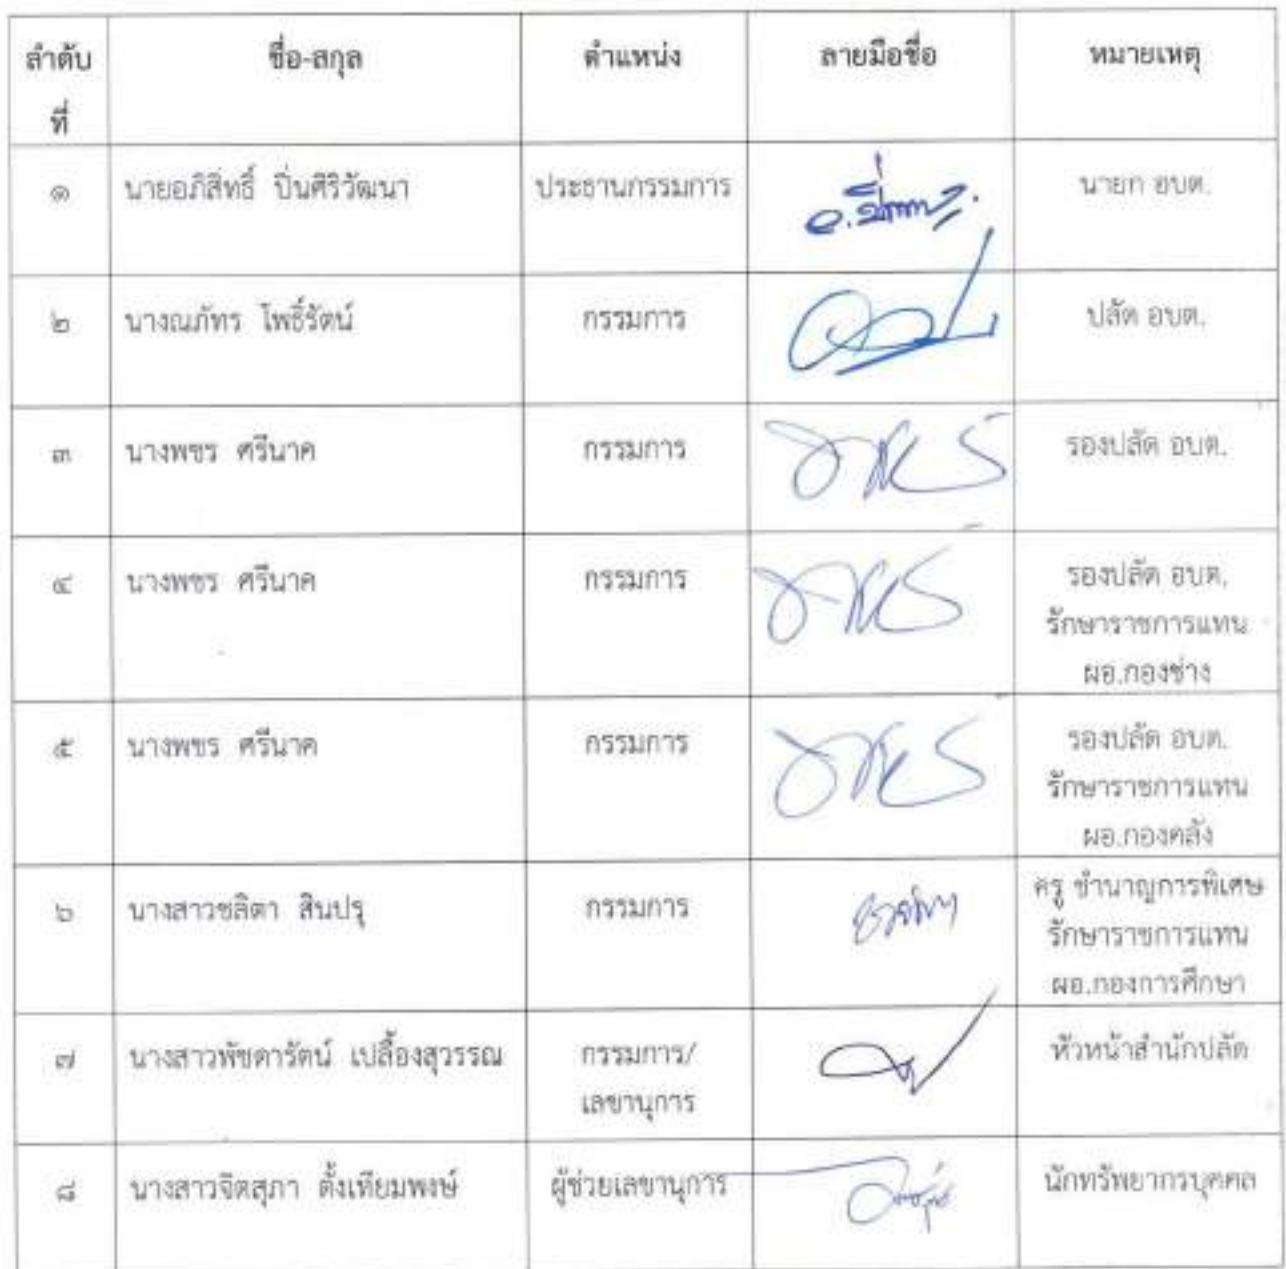 ลำดับ ชื่อ-สกุล ตำแหน่ง ลายมือชื่อ หมายเหตุ
ที่
๑ นายอภิสิทธิ์ ปิ่นศิริวัฒนา ประธานกรรมการ นายก อบต.
๒ นางณภัทร โพธิ์รัตน์ กรรมการ ปลัด อบต.
๓ นางพชร ศรีนาค กรรมการ รองปลัด อบต.
๔ นางพชร ศรีนาค กรรมการ รองปลัด อบต.
รักษาราชการแทน
ผอ.กองช่าง
๕ นางพชร ศรีนาค กรรมการ รองปลัด อบต.
รักษาราชการแทน
ผอ.กองคลัง
๖ นางสาวชลิตา สินปรุ กรรมการ ครู ชำนาญการพิเศษ
รักษาราชการแทน
ผอ.กองการศึกษา
๗ นางสาวพัชดารัตน์ เปลื้องสุวรรณ กรรมการ/ หัวหน้าสำนักปลัด
เลขานุการ
๘ นางสาวจิตสุภา ตั้งเทียมพงษ์ ผู้ช่วยเลขานุการ นักทรัพยากรบุคคล